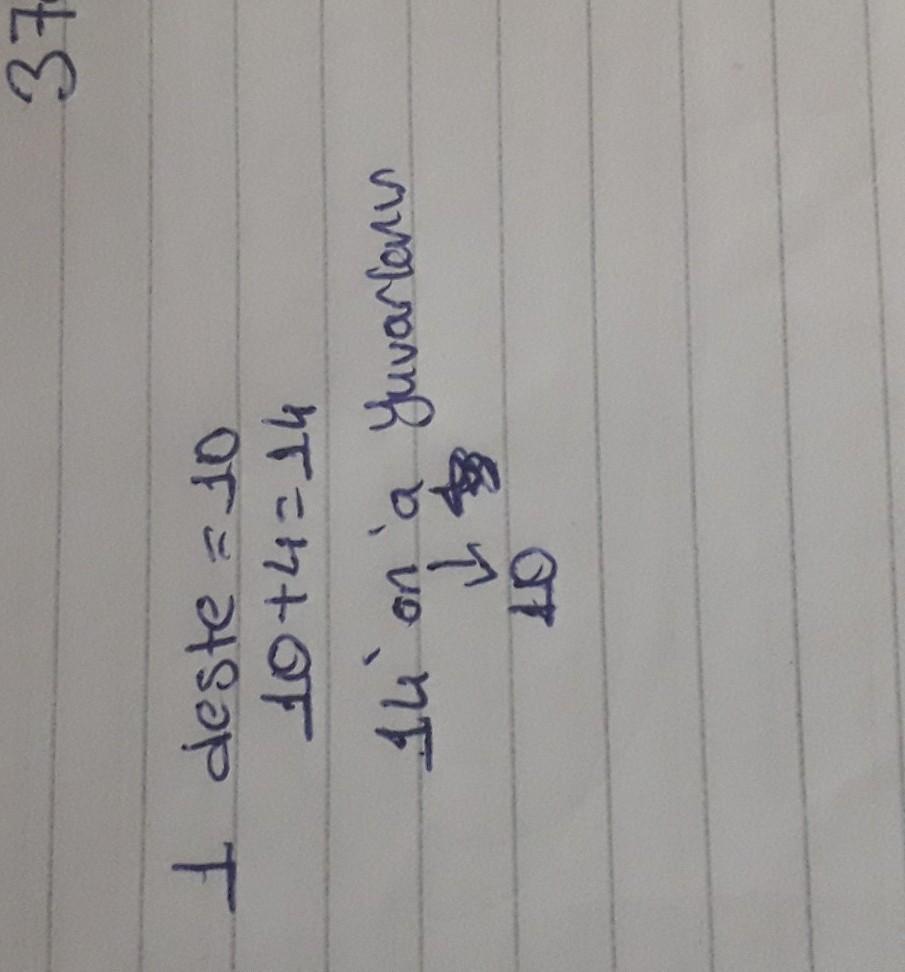 37
1 deste = 10
10+4=14
14' on 'a yuvarlanır
10